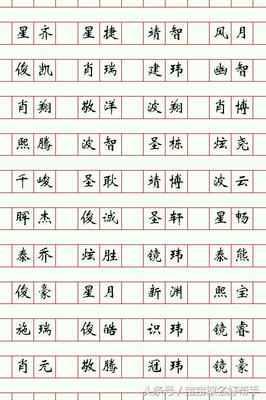 星齐 星捷 靖智 风月
俊凯 肖瑞 建玮 幽智
肖翔 敬洋 波翔 肖博
熙腾 波智 圣栋 炫尧
千峻 圣耿 靖博 波云
晖杰 俊诚 圣轩 星畅
泰乔 炫胜 镜玮 泰熊
俊豪 星月 新渊 熙宝
施瑞 俊皓 识玮 镜睿
肖元 敬腾 冠玮 镜豪
头条号 / 宝宝取名好帮手